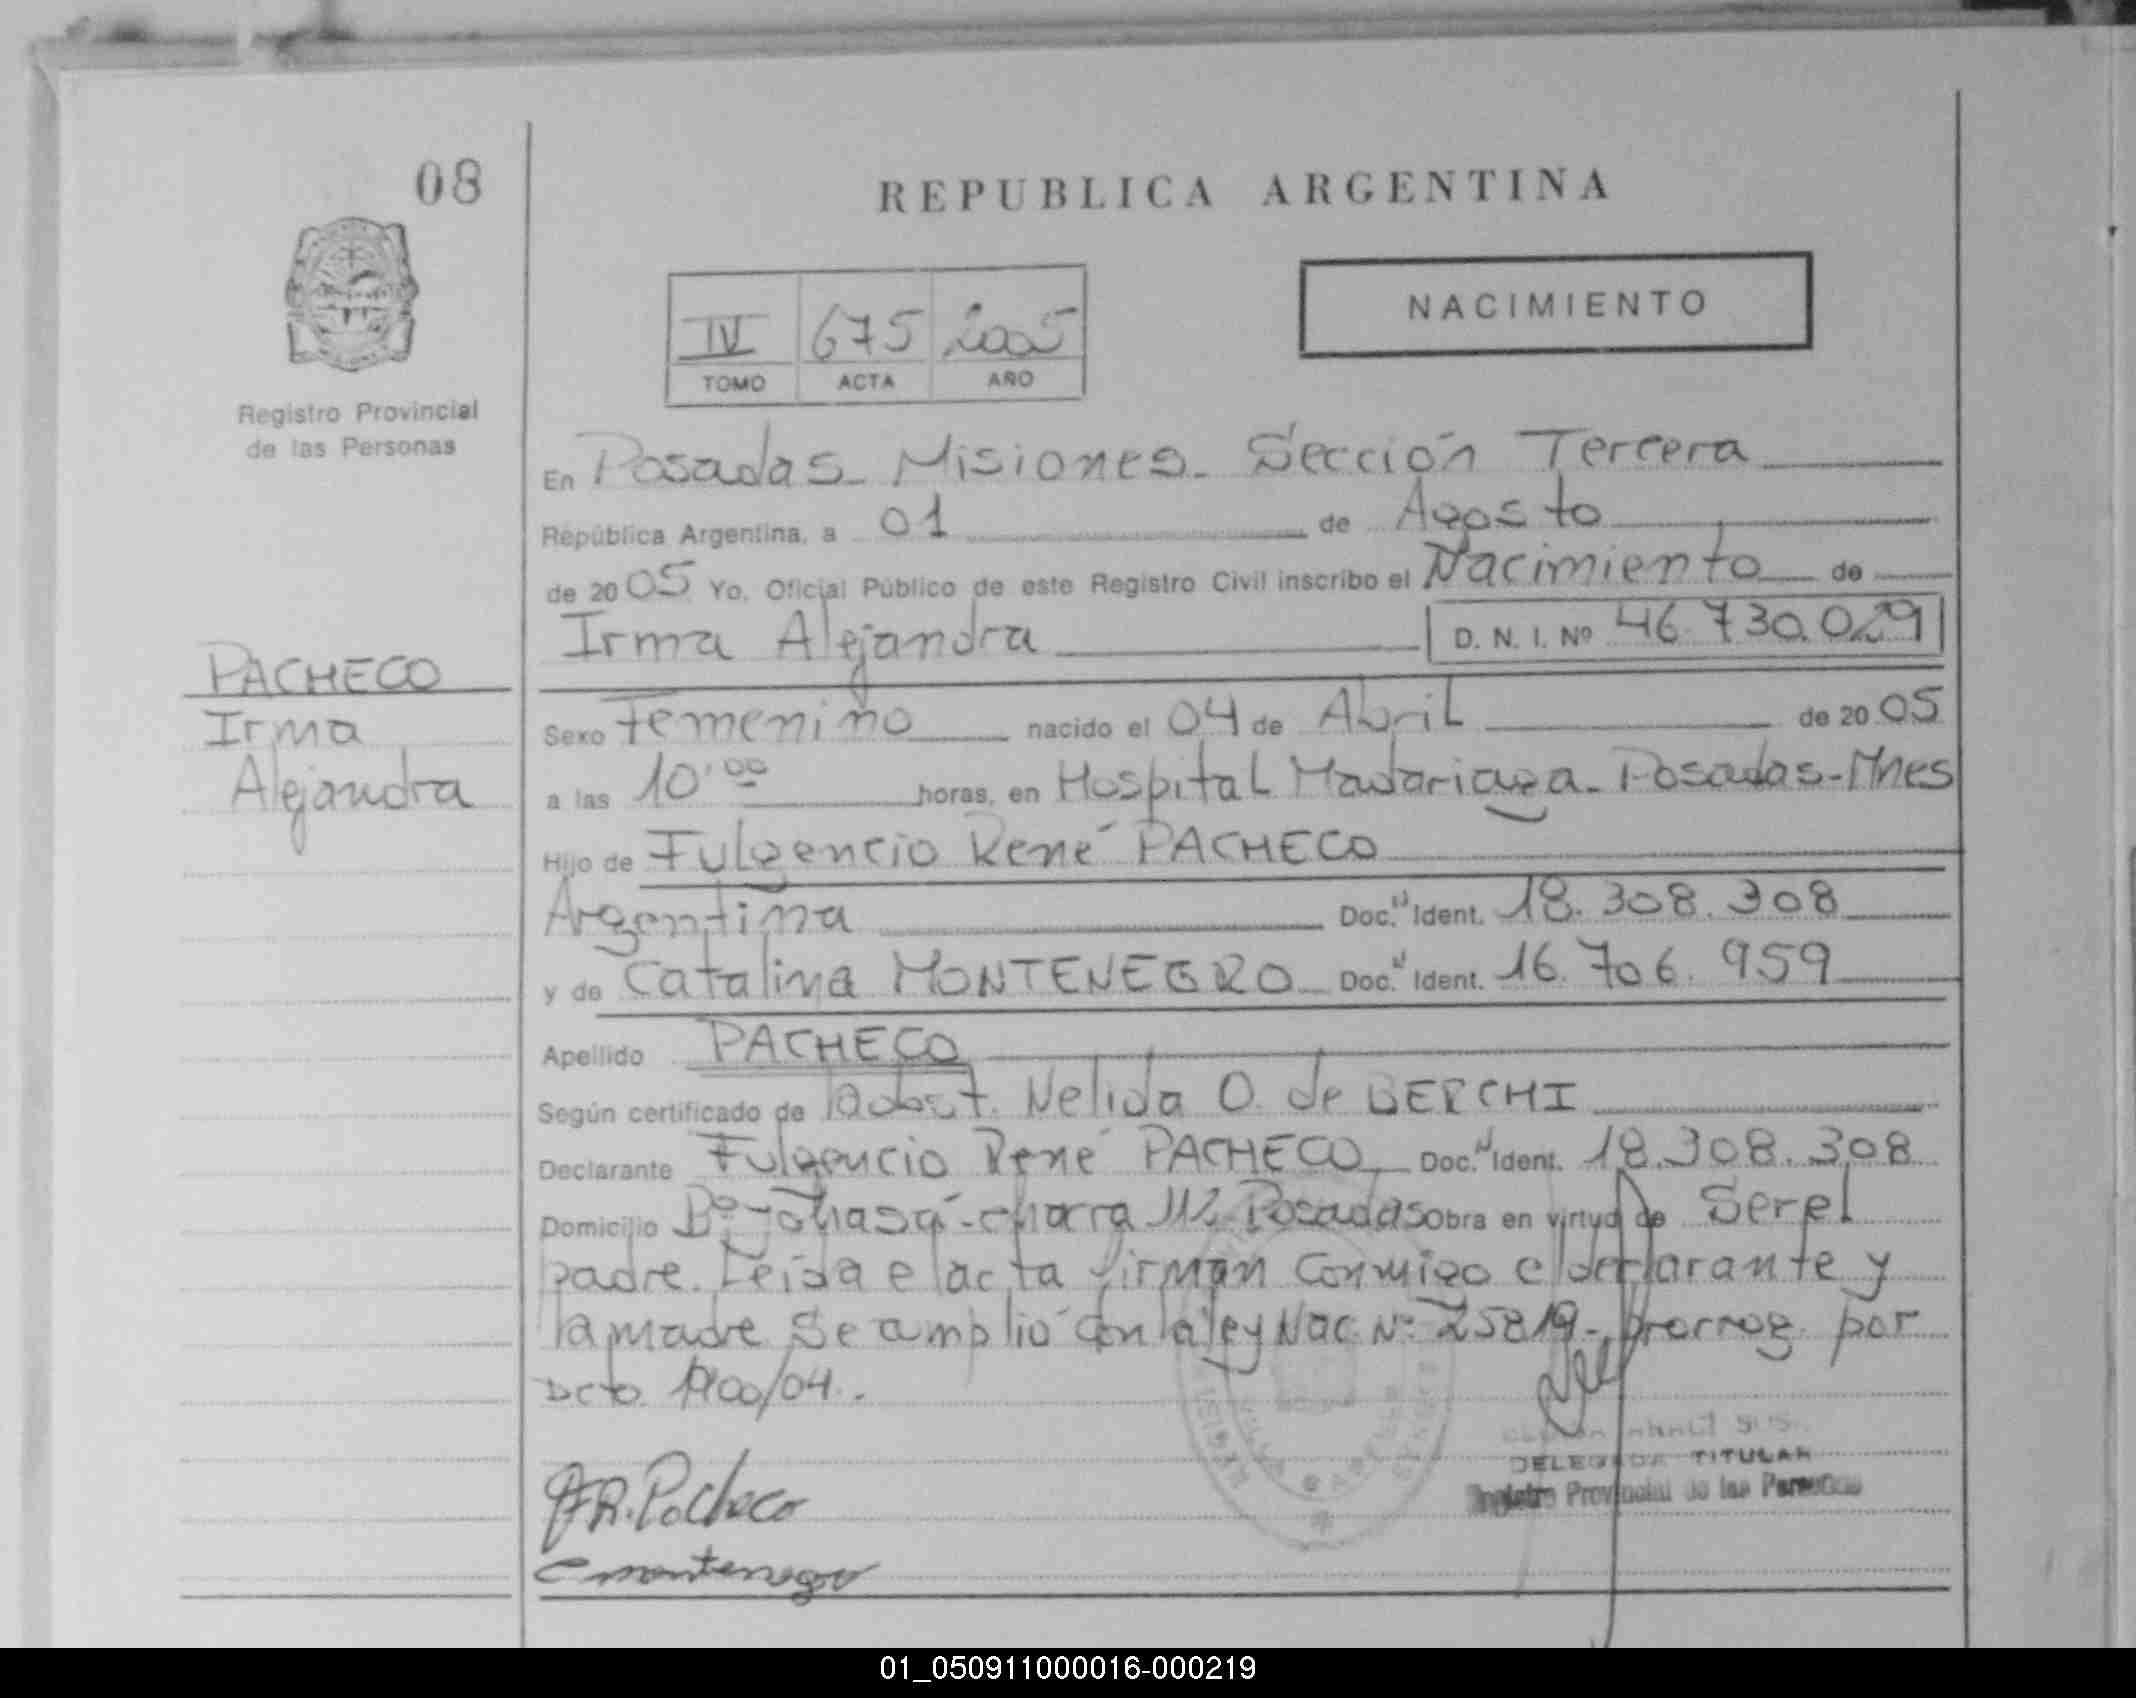 08
REPUBLICA ARGENTINA
NACIMIENTO
IV 675 2005
TOMO ACTA AÑO
Registro Provincial
de las Personas
En Posadas - Misiones - Sección Tercera
República Argentina, a 01 de Agosto
de 2005 Yo, Oficial Público de este Registro Civil inscribo el Nacimiento de
Irma Alejandra D. N. I. Nº 46.730.029
PACHECO
Irma
Alejandra
Sexo Femenino nacido el 04 de Abril de 2005
a las 10:00 horas, en Hospital Madariaga - Posadas - Mnes
Hijo de Fulgencio René PACHECO
Argentina Doc. N Ident. 18.308.308
y de Catalina MONTENEGRO Doc. N Ident. 16.706.959
Apellido PACHECO
Según certificado de la obst. Nelida O. de BERCHI
Declarante Fulgencio René PACHECO Doc. N Ident. 18.308.308
Domicilio Bº Posadas obra en virtud de Ser el
padre. Leida el acta firman conmigo el declarante y
la madre Se amplió con la ley Nac. Nº 25819 - prorrog. por
Dcto. 1100/04.
DELEGADA TITULAR
Registro Provincial de las Personas
F.R. Pacheco
C montenegro
01_050911000016-000219